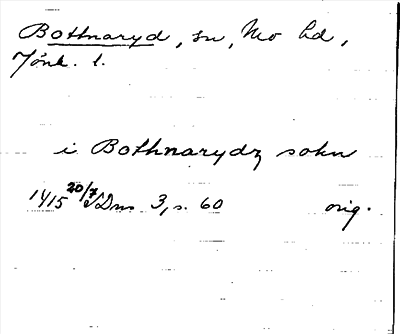 Bothnaryd, sn, Mo hd,
Jönk. l.
i Bothnarydz sokn
1415 20/7 SDns 3, s. 60 orig.